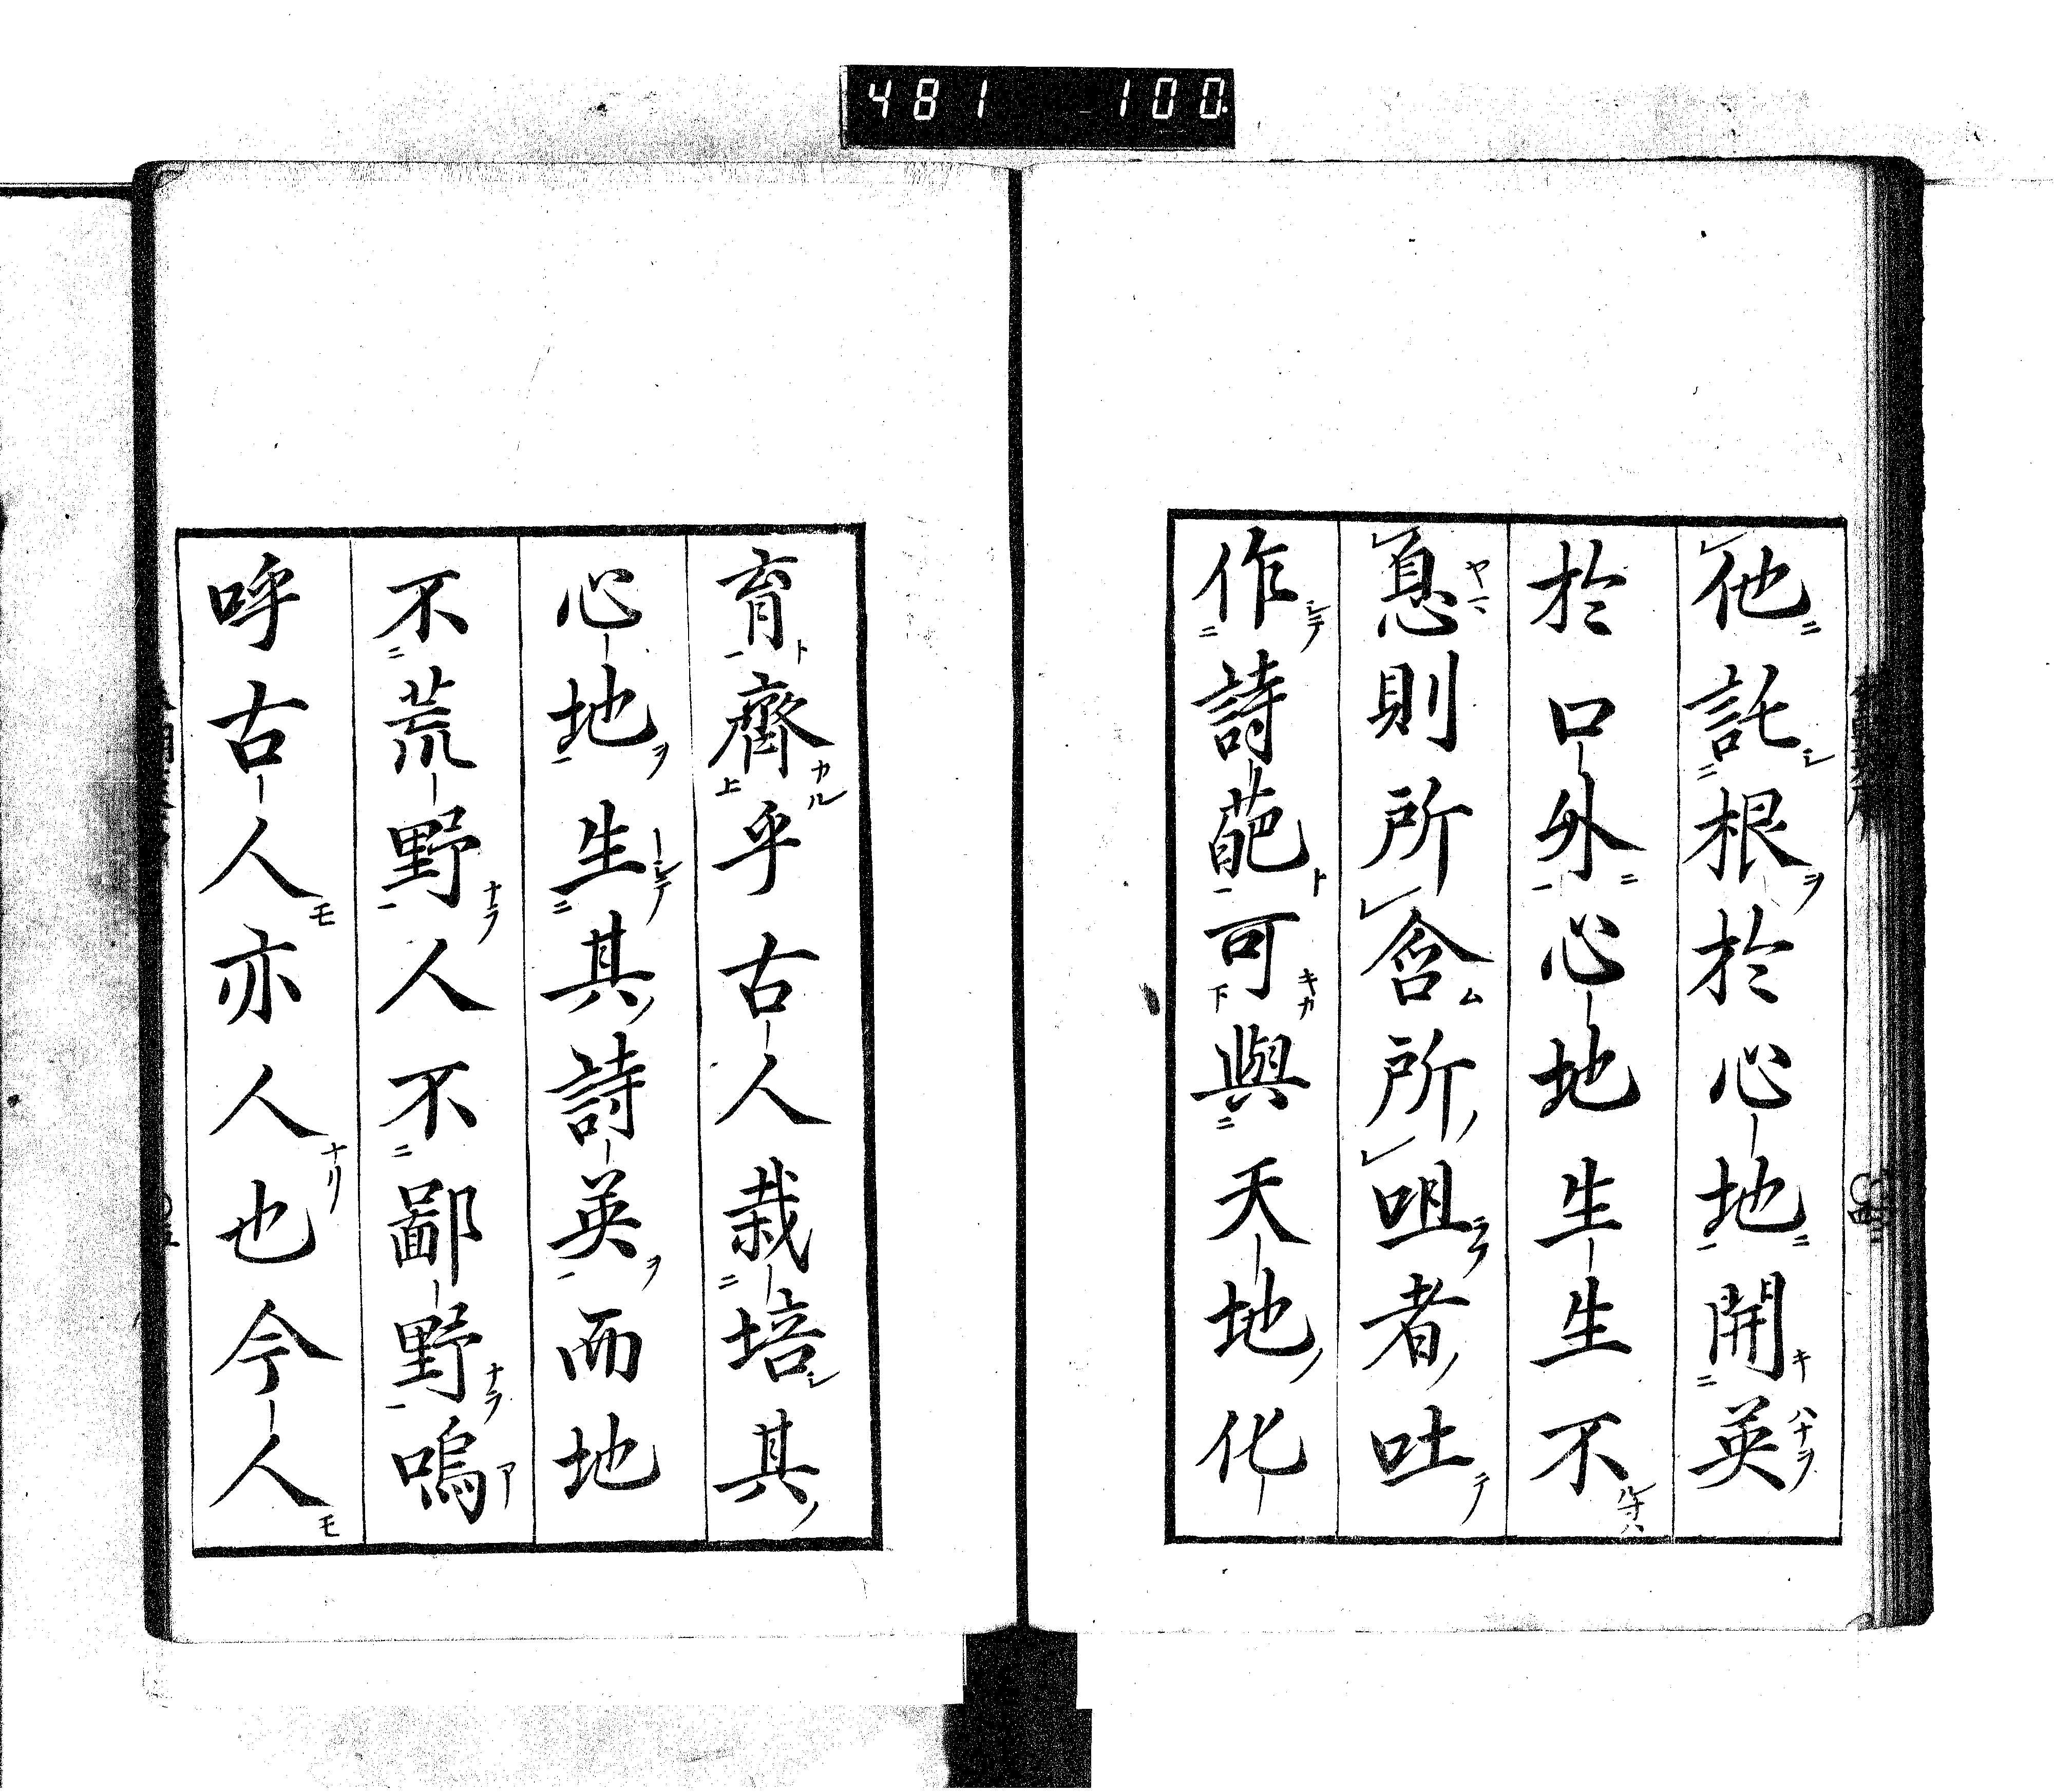 481 100
他託根於心地開英
於口外心地生生不
息則所含所咀者吐
作詩葩可與天地化
育齊乎古人栽培其
心地生其詩英而地
不荒野人不鄙野嗚
呼古人亦人也今人